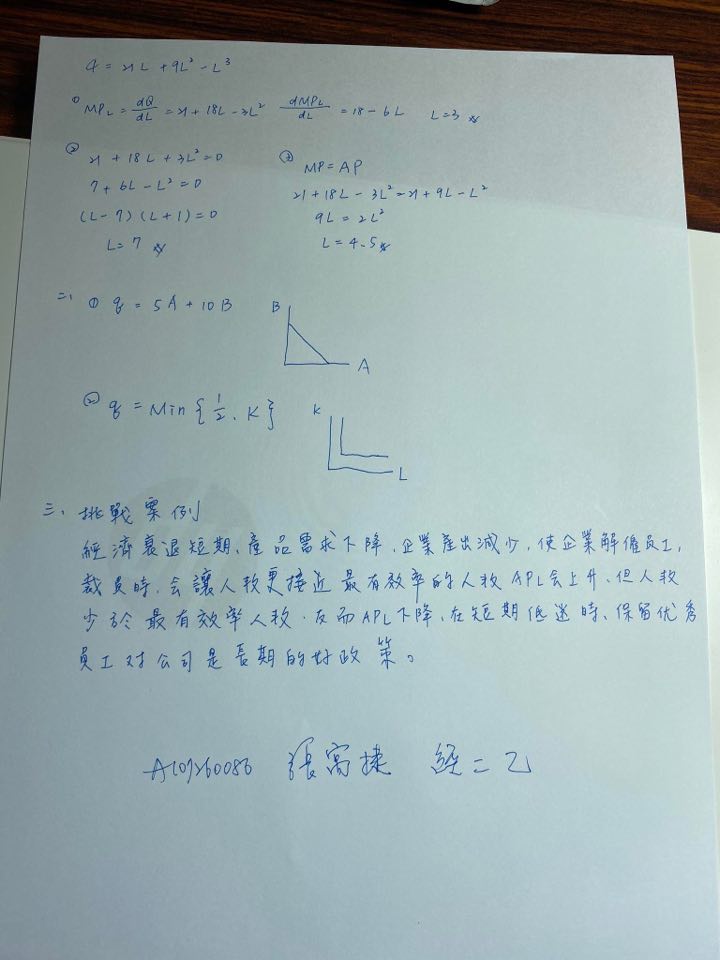 q = 21L + 9L² - L³
① MP_L = dQ/dL = 21 + 18L - 3L² dMP_L/dL = 18 - 6L L=3 ※
② 21 + 18L + 3L² = 0
7 + 6L - L² = 0
(L-7)(L+1) = 0
L = 7 ※
③ MP = AP
21 + 18L - 3L² = 21 + 9L - L²
9L = 2L²
L = 4.5 ※
二、① q = 5A + 10B
B
A
② q = Min { 1/2 . K }
K
L
三、挑戰案例
經濟衰退短期、產品需求下降、企業產出減少、使企業解僱員工,
裁員時、会讓人数更接近最有效率的人数 APL会上升、但人数
少於最有效率人数、反而APL下降、在短期低迷時、保留优秀
員工对公司是長期的好政策。
A109260086 張富捷 經二乙